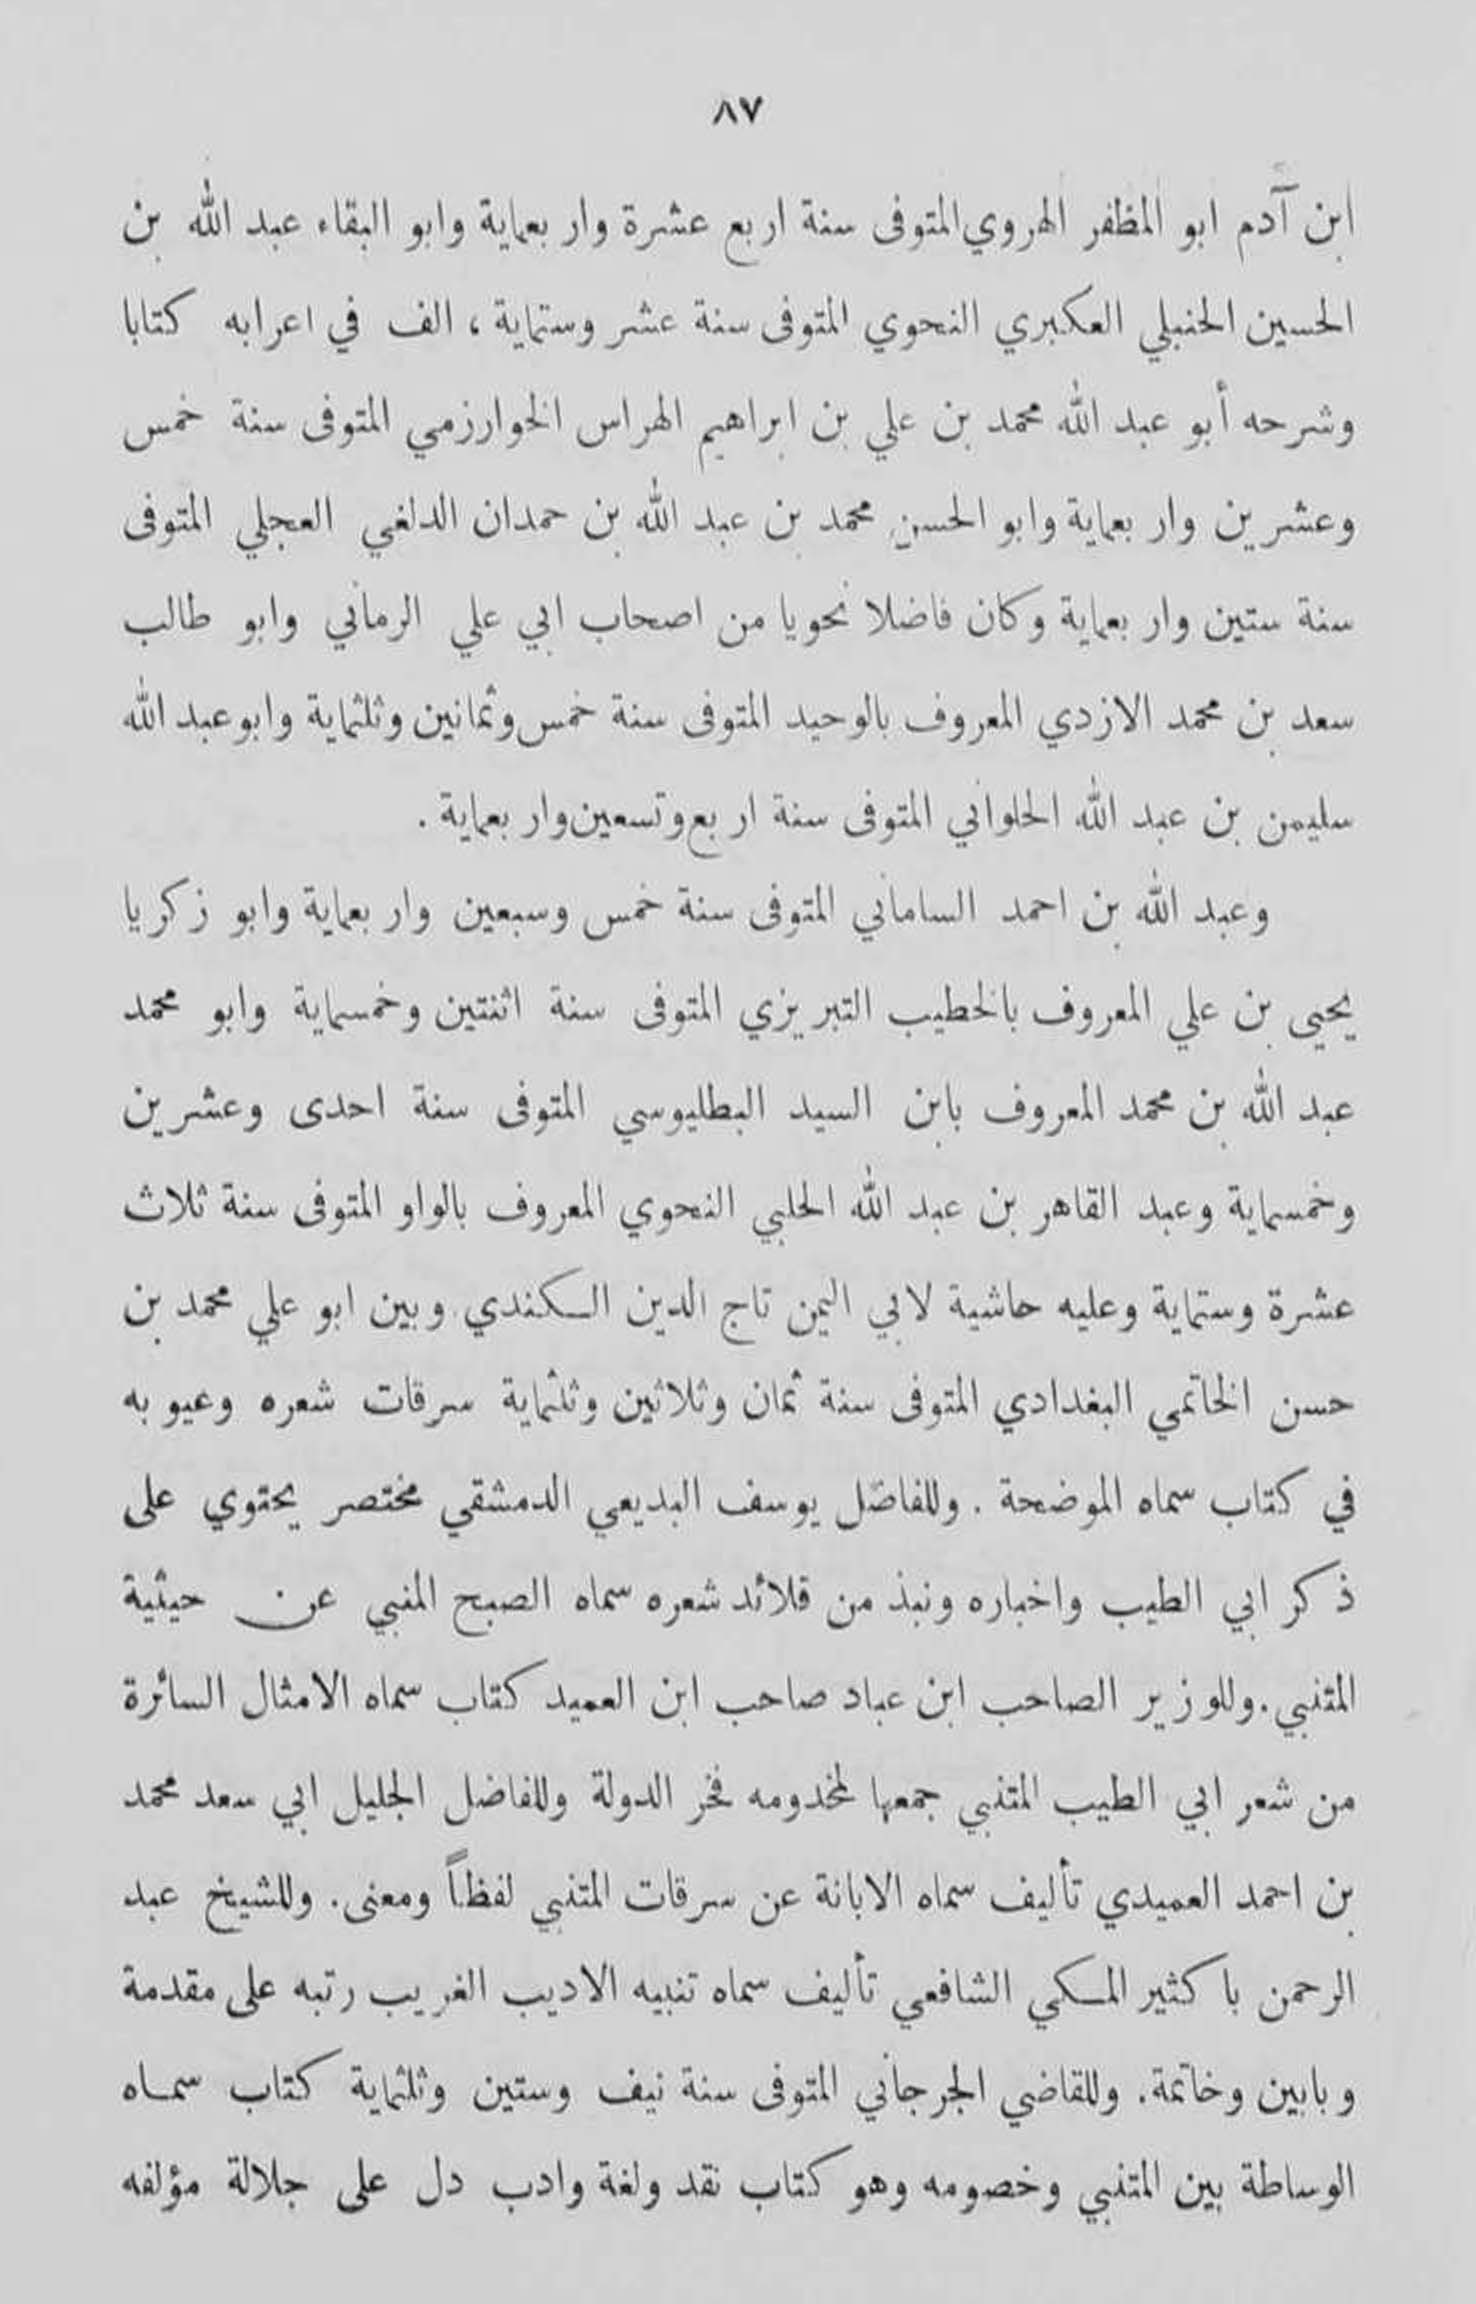 ٨٧
ابن آدم ابو المظفر الهروي المتوفى سنة اربع عشرة واربعماية وابو البقاء عبد الله بن
الحسين الحنبلي العكبري النحوي المتوفى سنة عشر وستماية، الف في اعرابه كتابا
وشرحه أبو عبد الله محمد بن علي بن ابراهيم الهراس الخوارزمي المتوفى سنة خمس
وعشرين واربعماية وابو الحسن محمد بن عبد الله بن حمدان الدلغي العجلي المتوفى
سنة ستين واربعماية وكان فاضلا نحويا من اصحاب ابي علي الرماني وابو طالب
سعد بن محمد الازدي المعروف بالوحيد المتوفى سنة خمس وثمانين وثلثماية وابو عبد الله
سليمن بن عبد الله الحلواني المتوفى سنة اربع وتسعين واربعماية .
وعبد الله بن احمد الساماني المتوفى سنة خمس وسبعين واربعماية وابو زكريا
يحيى بن علي المعروف بالخطيب التبريزي المتوفى سنة اثنتين وخمسماية وابو محمد
عبد الله بن محمد المعروف بابن السيد البطليوسي المتوفى سنة احدى وعشرين
وخمسماية وعبد القاهر بن عبد الله الحلبي النحوي المعروف بالواو المتوفى سنة ثلاث
عشرة وستماية وعليه حاشية لابي اليمن تاج الدين الكندي وبين ابو علي محمد بن
حسن الخاتمي البغدادي المتوفى سنة ثمان وثلاثين وثلثماية سرقات شعره وعيوبه
في كتاب سماه الموضحة . وللفاضل يوسف البديعي الدمشقي مختصر يحتوي على
ذكر ابي الطيب واخباره ونبذ من قلائد شعره سماه الصبح المنبي عن حيثية
المتنبي . وللوزير الصاحب ابن عباد صاحب ابن العميد كتاب سماه الامثال السائرة
من شعر ابي الطيب المتنبي جمعها لمخدومه فخر الدولة وللفاضل الجليل ابي سعد محمد
بن احمد العميدي تأليف سماه الابانة عن سرقات المتنبي لفظاً ومعنى . وللشيخ عبد
الرحمن باكثير المكي الشافعي تأليف سماه تنبيه الاديب الغريب رتبه على مقدمة
وبابين وخاتمة . وللقاضي الجرجاني المتوفى سنة نيف وستين وثلثماية كتاب سماه
الوساطة بين المتنبي وخصومه وهو كتاب نقد ولغة وادب دل على جلالة مؤلفه